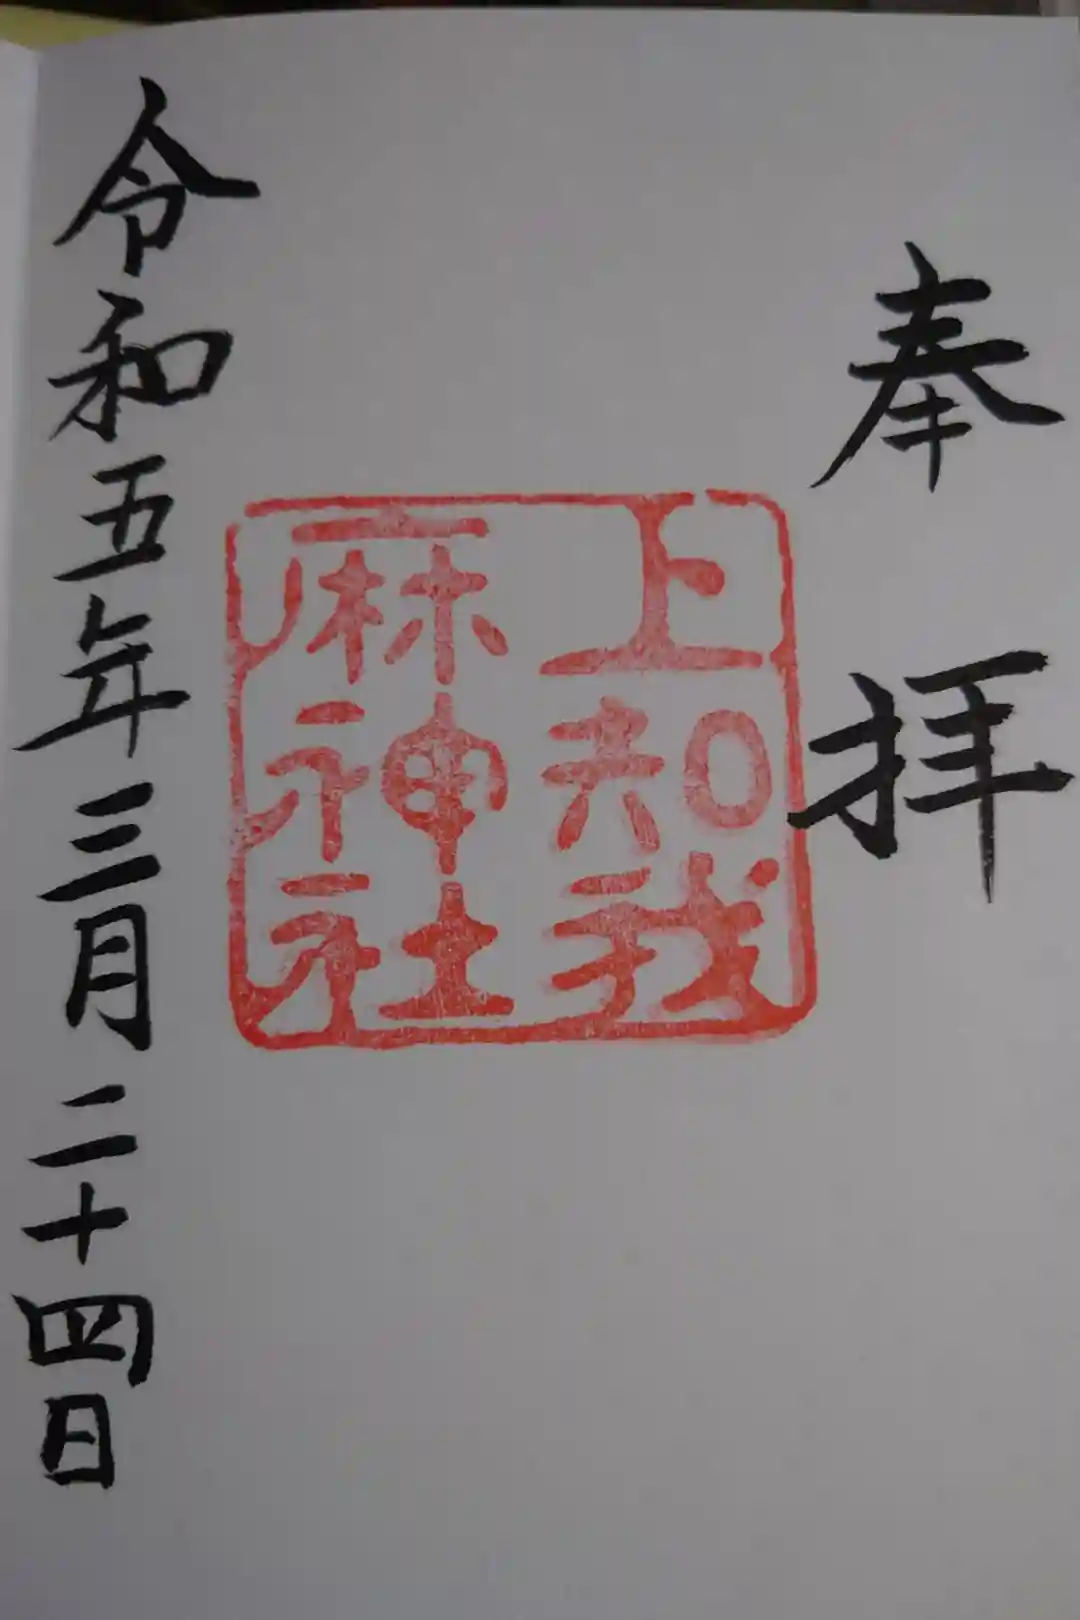 奉拝
上知我
麻神社
令和五年三月二十四日